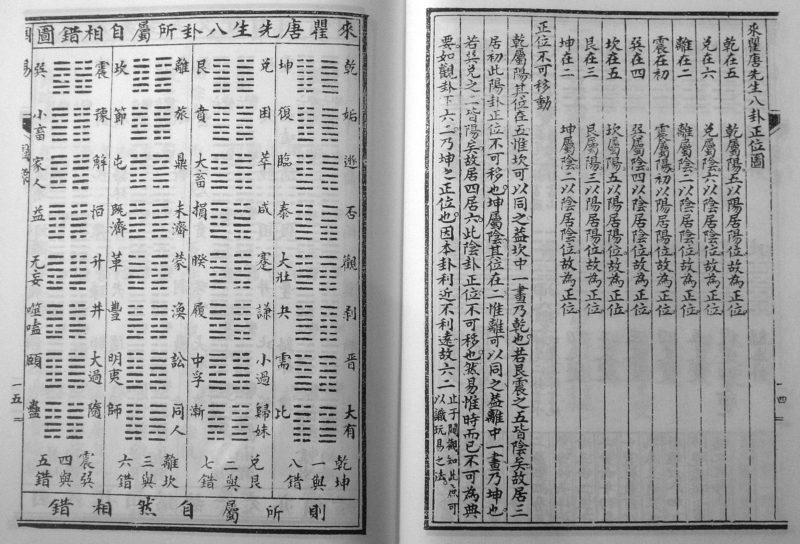 來瞿唐先生八卦正位圖
乾在五 乾屬陽五以陽居陽位故為正位
兌在六 兌屬陰六以陰居陰位故為正位
離在二 離屬陰二以陰居陰位故為正位
震在初 震屬陽初以陽居陽位故為正位
巽在四 巽屬陰四以陰居陰位故為正位
坎在五 坎屬陽五以陽居陽位故為正位
艮在三 艮屬陽三以陽居陽位故為正位
坤在二 坤屬陰二以陰居陰位故為正位
正位不可移動
乾屬陽其位在五惟坎可以同之益坎中一畫乃乾也若艮震之五皆陰矣故居三
居初此陽卦正位不可移也坤屬陰其位在二惟離可以同之益離中一畫乃坤也
若巽兌之二皆陽矣故居四居六此陰卦正位不可移也然易惟時而已不可為典
要如觀卦下六二乃坤之正位也因本卦利近不利遠故六二
止于闚觀知此庶可
以識玩易之法
一四
來瞿唐先生八卦所屬自相錯圖
乾 姤 遯 否 觀 剝 晉 大有
坤 復 臨 泰 大壯 夬 需 比
兌 困 萃 咸 蹇 謙 小過 歸妹
艮 賁 大畜 損 睽 履 中孚 漸
離 旅 鼎 未濟 蒙 渙 訟 同人
坎 節 屯 既濟 革 豐 明夷 師
震 豫 解 恒 升 井 大過 隨
巽 小畜 家人 益 无妄 噬嗑 頤 蠱
乾坤
一與
八錯
兌艮
二與
七錯
離坎
三與
六錯
震巽
四與
五錯
則所屬自然相錯
一五